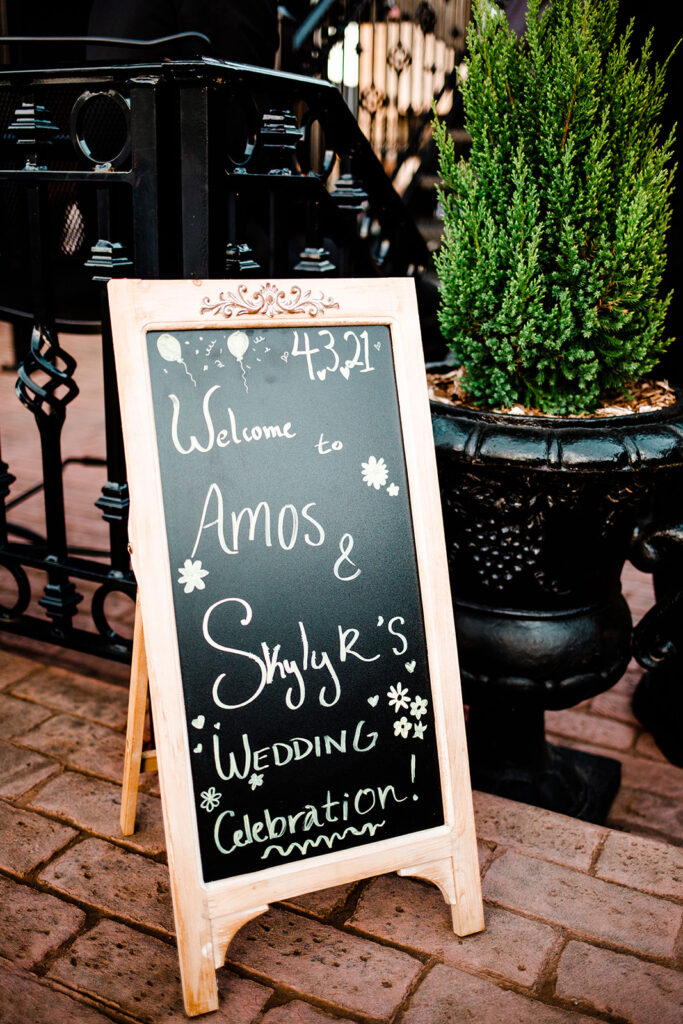 4.3.21
Welcome to
Amos
&
Skylyr's
Wedding
Celebration!